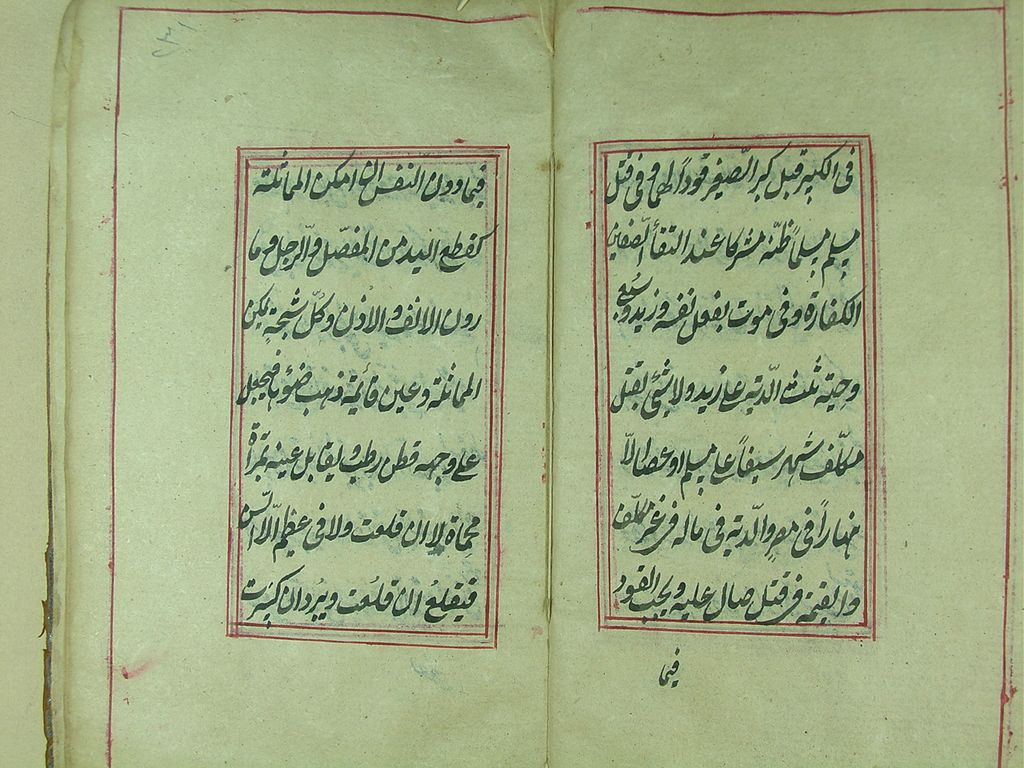 فى الكبير قبل كبر الصّغير قوداً لهما و فى قتل
مسلم مسلماً ظنّه مشركا عند التقأ الصّفين
الكفارة و فى موت بفعل نفسه و زيد و سبع
وحيّة ثلث الدّية على زيد ولا شئ بقتل
مكلّف شهر سيفاً على مسلم او عصا الّا
نهاراً فى مصر والدّية فى ماله فى غير مكلّف
والقيمة فى قتل صال عليه ويجب القود
فيما
فيما دون النفس ان امكن المماثلة
كقطع اليد من المفصل والرجل وما
رون الانف و الاذن وكلّ شجّة يمكن
المماثلة وعين قائمة ذهب ضوؤها فيجعل
على وجهه قطن رطب و يقابل عينه بمرآة
محماة لا ان قلعت ولا فى عظم الّا السّن
فيقلع ان قلعت ويبرد ان كسرت